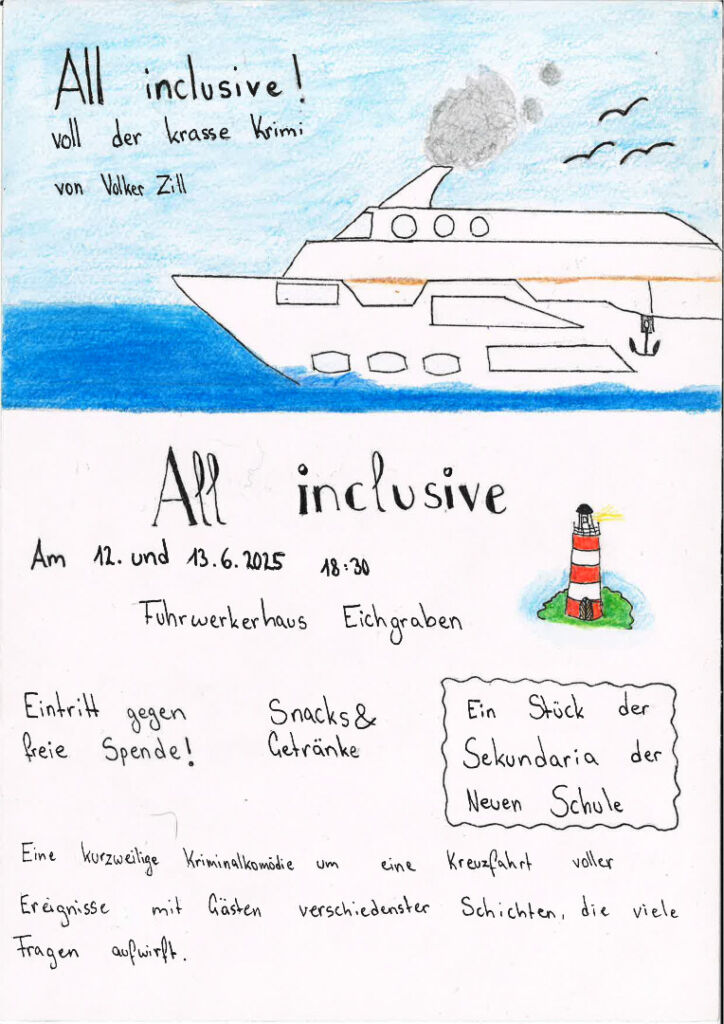 All inclusive!
voll der krasse Krimi
von Volker Zill
All inclusive
Am 12. und 13.6.2025 18:30
Fuhrwerkerhaus Eichgraben
Eintritt gegen
freie Spende!
Snacks&
Getränke
Ein Stück der
Sekundaria der
Neuen Schule
Eine kurzweilige Kriminalkomödie um eine Kreuzfahrt voller
Ereignisse mit Gästen verschiedenster Schichten, die viele
Fragen aufwirft.